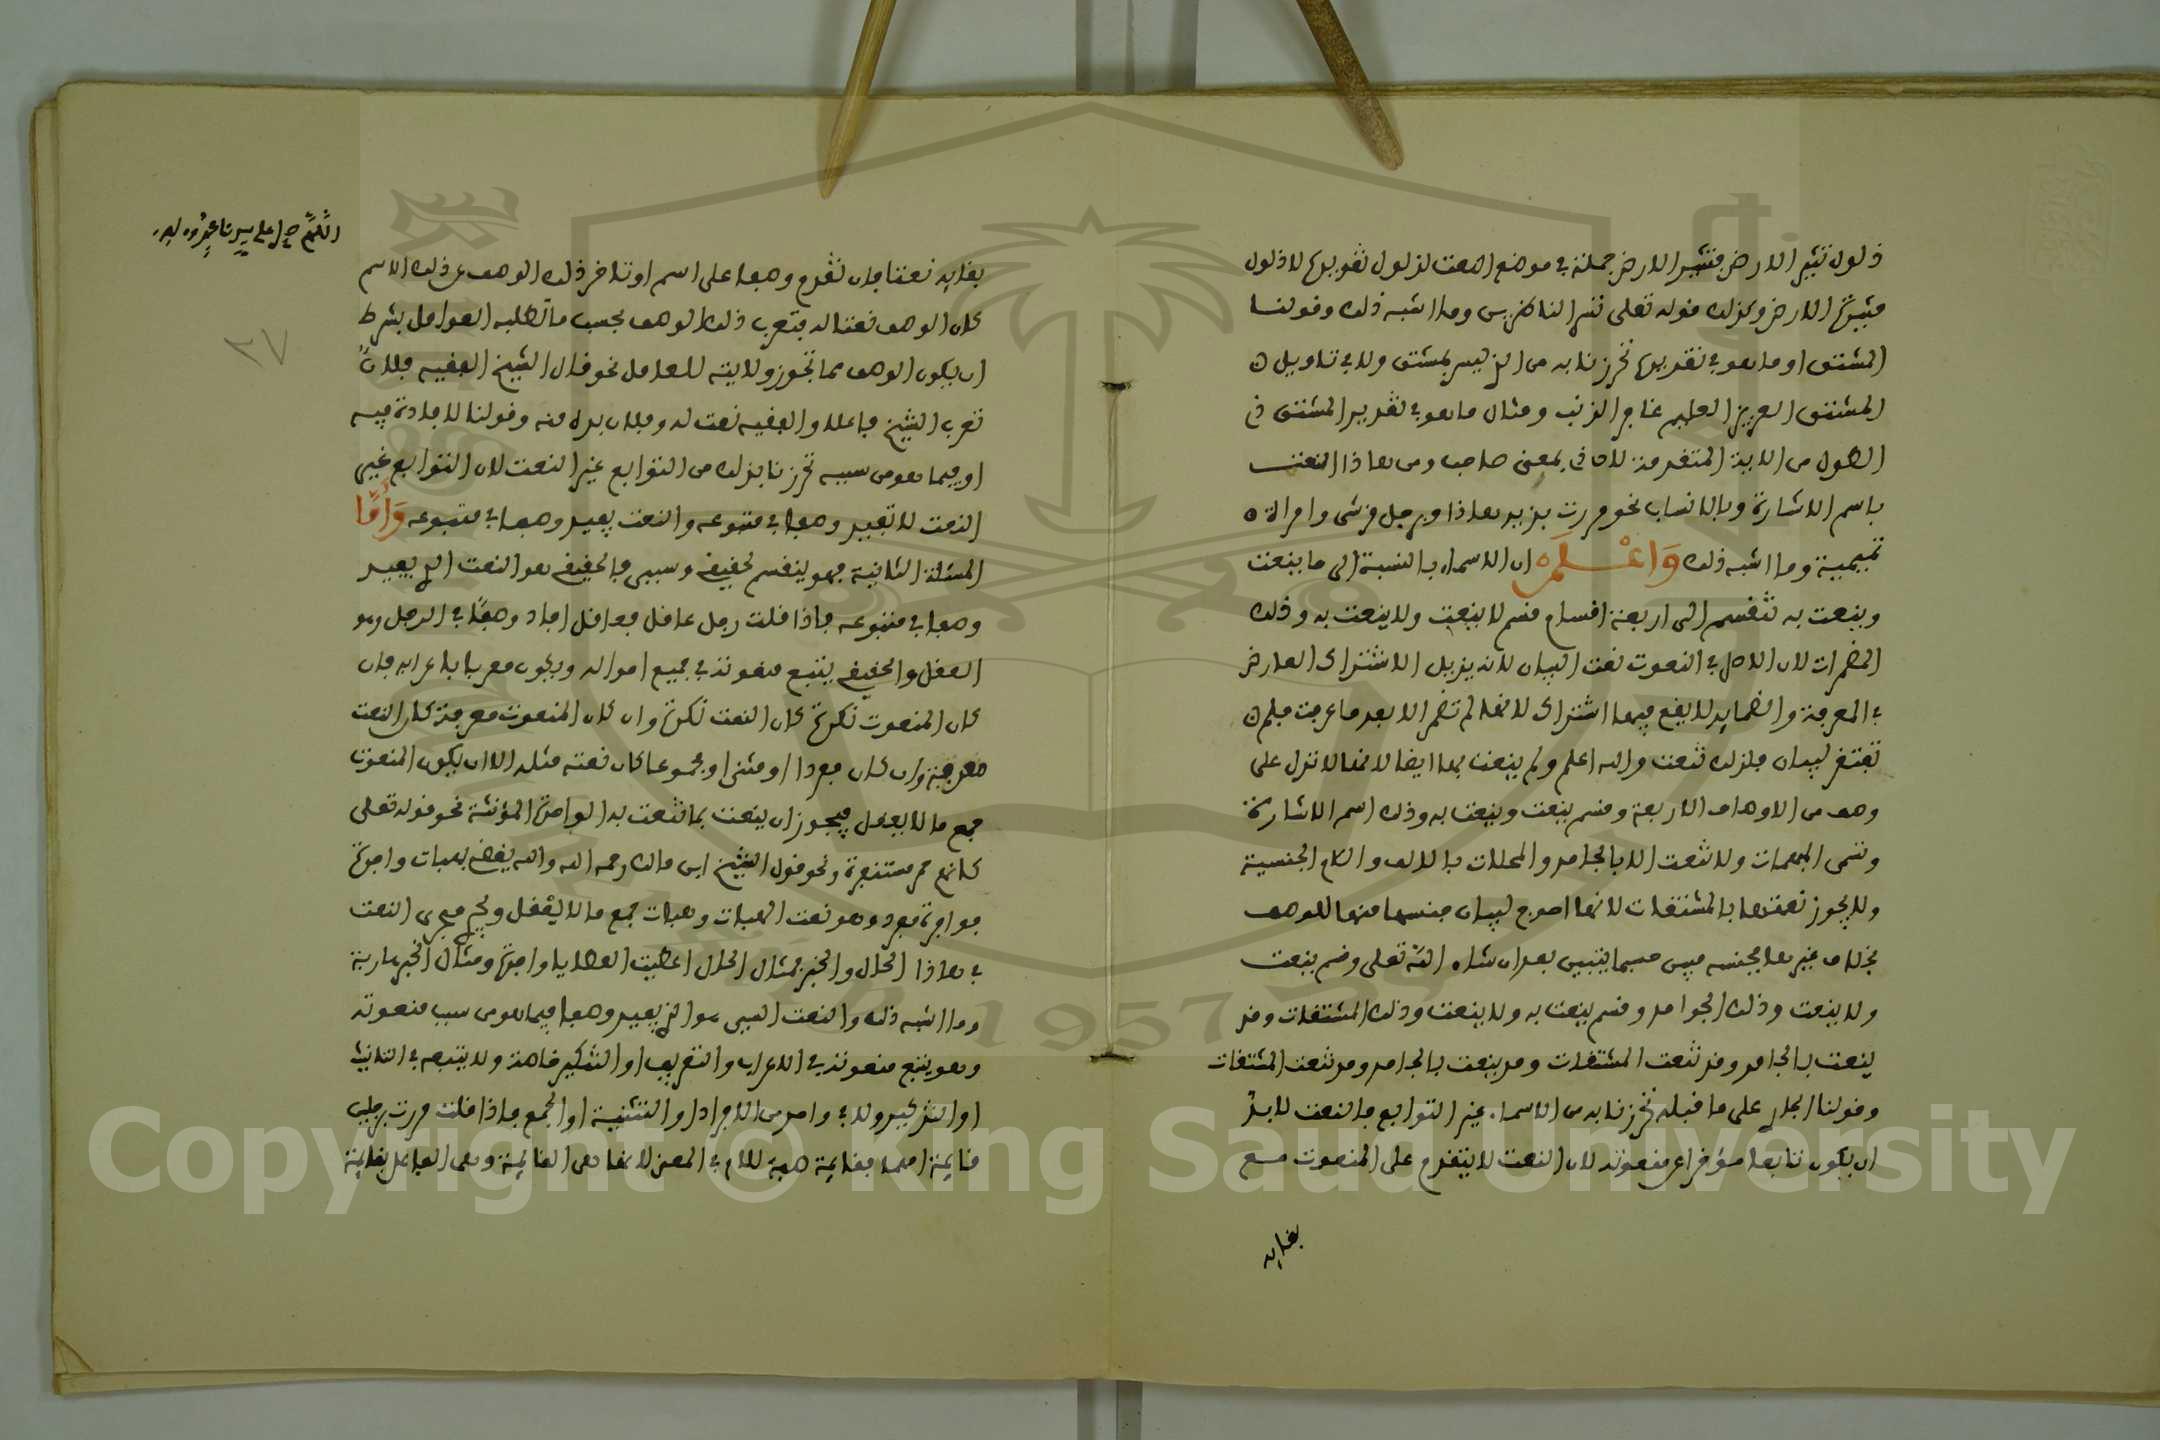 ذلول تثير الارض فتثير الارض جملة في موضع النعت لذلول تقديرها لا ذلول
مثيرة الارض وكذلك قوله تعلى تنزع الناس وما اشبه ذلك وقولنا
المشتق او ما هو في تقديرها تحرزنا به من الذي ليس بمشتق ولا في تاويل
المشتق العزيز العليم غافر الذنب ومثال ما هو في تقدير المشتق ذي
الطول من الاية المتقدمة لان ذي بمعنى صاحب ومن هاذا النعت
باسم الاشارة وبالانساب نحو مررت بزيد هاذا وبرجل قرشي وامراة
تميمية وما اشبه ذلك وَاعْلَم ان الاسماء بالنسبة الى ما ينعت
وينعت به تنقسم الى اربعة اقسام قسم لا ينعت ولا ينعت به وذلك
المضمرات لان الاصل في النعوت نعت البيان لانه يزيل الاشتراك العارض
في المعرفة والضماير لا يقع فيها اشتراك لانها لم تضمر الا بعد ما عرفت فلم
تفتقر لبيان فلذلك تنعت والله اعلم ولم ينعت بها ايضا لانها لا تدل على
وصف من الاوصاف الاربعة وقسم ينعت وينعت به وذلك اسم الاشارة
وتسمى المبهمات ولا تنعت الا بالجامد والمحلات بالالف واللام الجنسية
ولا يجوز نعتها بالمشتقات لانها احوج لبيان جنسها منها للوصف
بخلاف غيرها بجنسه مبين حسبما يتبين بعد ان شاء الله تعلى وقسم ينعت
ولا ينعت وذلك الجوامد وقسم ينعت به ولا ينعت وذلك المشتقات وقد
ينعت بالجامد وقد تنعت المشتقات وقد ينعت بالجامد وقد تنعت المشتقات
وقولنا الجار على ما قبله تحرزنا به من الاسماء غير التوابع فالنعت لا بد
ان يكون تابعا مؤخرا عن منعوته لان النعت لا يتقدم على المنعوت مع
بقايه
اللهم صل على سيدنا محمد وءاله
٢٧
بقايه نعتا فان تقدم وصف على اسم او تاخر ذلك الوصف عن ذلك الاسم
كان الوصف نعتا له فتعرب ذلك الوصف بحسب ما تطلبه العوامل بشرط
ان يكون الوصف مما تجوز ولايته للعامل نحو قال الشيخ الفقيه فلان
تعرب الشيخ فاعلا والفقيه نعت له وفلان بدلا منه وقولنا لافادة فيه
او فيما هو من سببه تحرزنا بذلك من التوابع غير النعت لان التوابع غير
النعت لا تفيد وصفا في متبوعه والنعت يفيد وصفا في متبوعه وَأَمَّا
المسئلة الثانية فهو ينقسم لحقيقي وسببي فالحقيقي هو النعت الذي يفيد
وصفا في متبوعه فاذا قلت رجل عاقل فعاقل افاد وصفا في الرجل وهو
العقل والحقيقي يتبع منعوته في جميع احواله ويكون معربا باعرابه فان
كان المنعوت نكرة كان النعت نكرة وان كان المنعوت معرفة كان النعت
معرفة وان كان مفردا او مثنى او مجموعا كان نعته مثله الا ان يكون المنعوت
جمع ما لا يعقل فيجوز ان ينعت بما تنعت به الواحدة المؤنثة نحو قوله تعلى
كانهم حمر مستنفرة ونحو قول الشيخ ابن مالك رحمه الله والله يقضي بهبات وافرة
فوافرة مفرد وهو نعت الهبات وهبات جمع ما لا يعقل ويجري مجرى النعت
في هاذا الحال والخبر فمثال الحال اعطيت العطايا وافرة ومثال الخبر
وما اشبه ذلك والنعت السببي هو الذي يفيد وصفا فيما هو من سبب منعوته
وهو يتبع منعوته في الاعراب والتعريف او التنكير خاصة ولا يتبعه في التانيث
او التذكير ولا في واحد من الافراد او التثنية او الجمع فاذا قلت مررت برجلين
قايمة امهما فقايمة صفة للام في المعنى لانها هي القايمة وهي الفاعل بقايمة